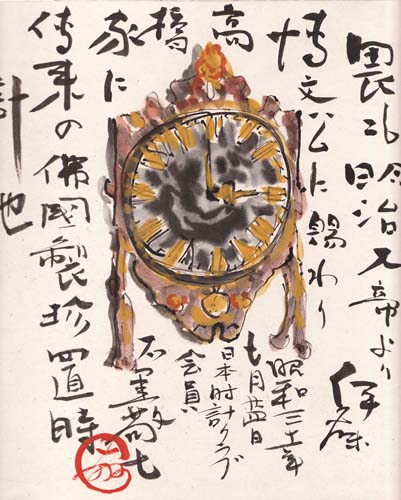 畏くも明治大帝より
伊藤
博文公に賜わり
高橋家に
傳来の佛國製珍置時
計也
昭和三十一年
七月廿四日
日本時計クラブ
会員
石黒敬七